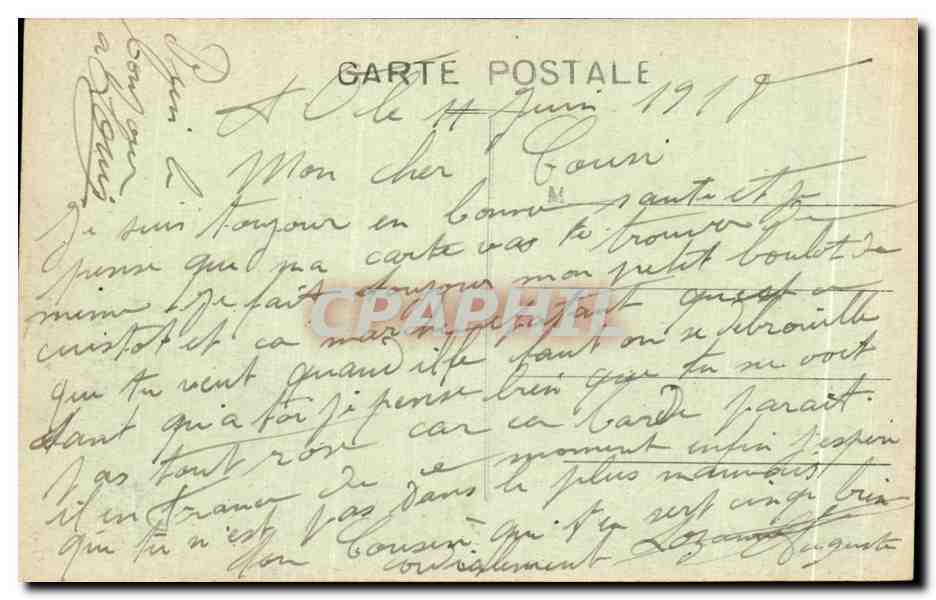 CARTE POSTALE
A O le 11 Juin 1918
Mon cher Cousin
Je suis toujour en bonne sante et je
pense que ma carte vas te trouver de
meme je fait toujour mon petit boulot de
cuistot et ca marche pourtant qu'est ce
que tu veut quand ille faut on se debrouille
tant qu'a toi je pense bien que tu ne voit
pas tout rose car ca barde parait
il en France de ce moment enfin j'espere
que tu n'est pas dans le plus mauvais
Ton Cousin qui t'en sert cinq bien
cordialement Auguste
Bien le
bonjour
a Louis
CPAPHIL